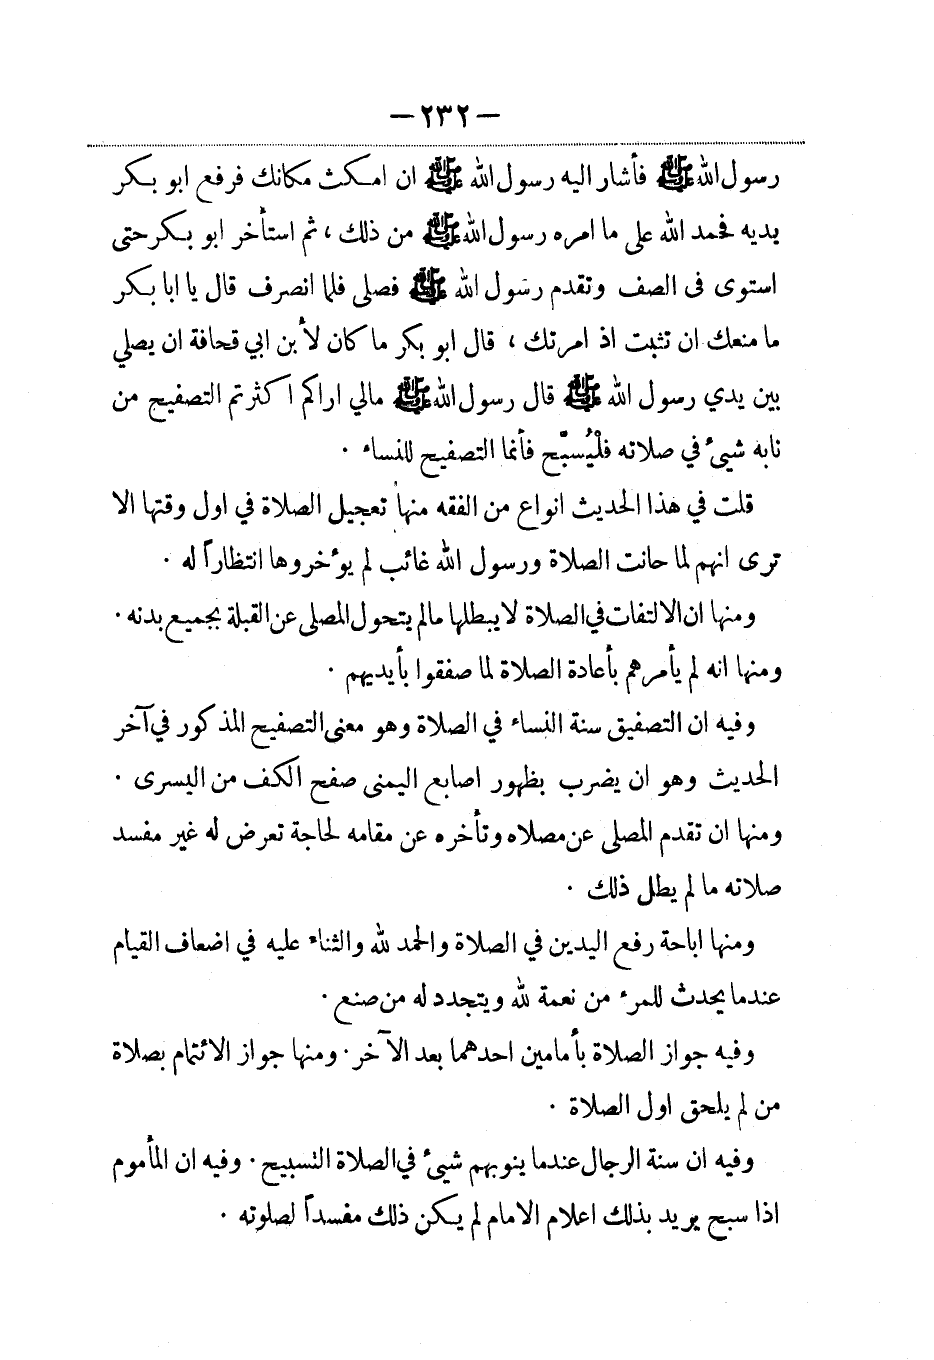 — ٢٣٢ —
رسول الله ﷺ فأشار اليه رسول الله ﷺ ان امكث مكانك فرفع ابو بكر
يديه فحمد الله على ما امره رسول الله ﷺ من ذلك ، ثم استأخر ابو بكر حتى
استوى فى الصف وتقدم رسول الله ﷺ فصلى فلما انصرف قال يا ابا بكر
ما منعك ان تثبت اذ امرتك ، قال ابو بكر ما كان لأبن ابي قحافة ان يصلي
بين يدي رسول الله ﷺ قال رسول الله ﷺ مالي اراكم اكثرتم التصفيح من
نابه شيئ في صلاته فلْيُسبّح فأنما التصفيح للنساء .
قلت في هذا الحديث انواع من الفقه منها تعجيل الصلاة في اول وقتها الا
ترى انهم لما حانت الصلاة ورسول الله غائب لم يؤخروها انتظاراً له .
ومنها ان الالتفات في الصلاة لا يبطلها مالم يتحول المصلى عن القبلة بجميع بدنه .
ومنها انه لم يأمرهم بأعادة الصلاة لما صفقوا بأيديهم .
وفيه ان التصفيق سنة النساء في الصلاة وهو معنى التصفيح المذكور في آخر
الحديث وهو ان يضرب بظهور اصابع اليمنى صفح الكف من اليسرى .
ومنها ان تقدم المصلى عن مصلاه وتأخره عن مقامه لحاجة تعرض له غير مفسد
صلاته ما لم يطل ذلك .
ومنها اباحة رفع اليدين في الصلاة والحمد لله والثناء عليه في اضعاف القيام
عندما يحدث للمرء من نعمة لله ويتجدد له من صنع .
وفيه جواز الصلاة بأمامين احدهما بعد الآخر . ومنها جواز الائتمام بصلاة
من لم يلحق اول الصلاة .
وفيه ان سنة الرجال عندما ينوبهم شيئ في الصلاة التسبيح . وفيه ان المأموم
اذا سبح يريد بذلك اعلام الامام لم يكن ذلك مفسداً لصلوته .